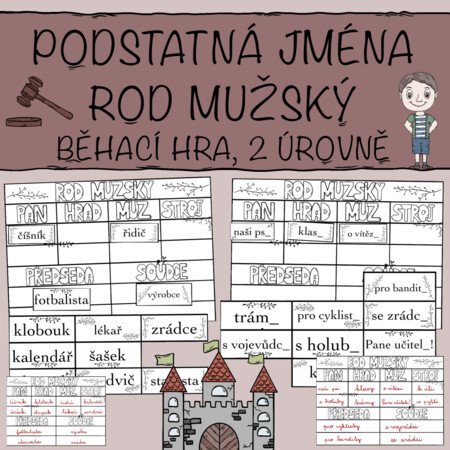 PODSTATNÁ JMÉNA
ROD MUŽSKÝ
BĚHACÍ HRA, 2 ÚROVNĚ
ROD MUŽSKÝ
PÁN HRAD MUŽ STROJ
číšník
řidič
PŘEDSEDA SOUDCE
fotbalista
výrobce
klobouk
lékař
zrádce
kalendář
šašek
ROD MUŽSKÝ
PÁN HRAD MUŽ STROJ
naši ps_
klas_
o vítěz_
PŘEDSEDA SOUDCE
pro bandit_
trám_
pro cyklist_
se zrádc_
s vojevůdc_
s holub_
Pane učitel_!
ROD MUŽSKÝ
PÁN HRAD MUŽ STROJ
PŘEDSEDA SOUDCE
ROD MUŽSKÝ
PÁN HRAD MUŽ STROJ
PŘEDSEDA SOUDCE